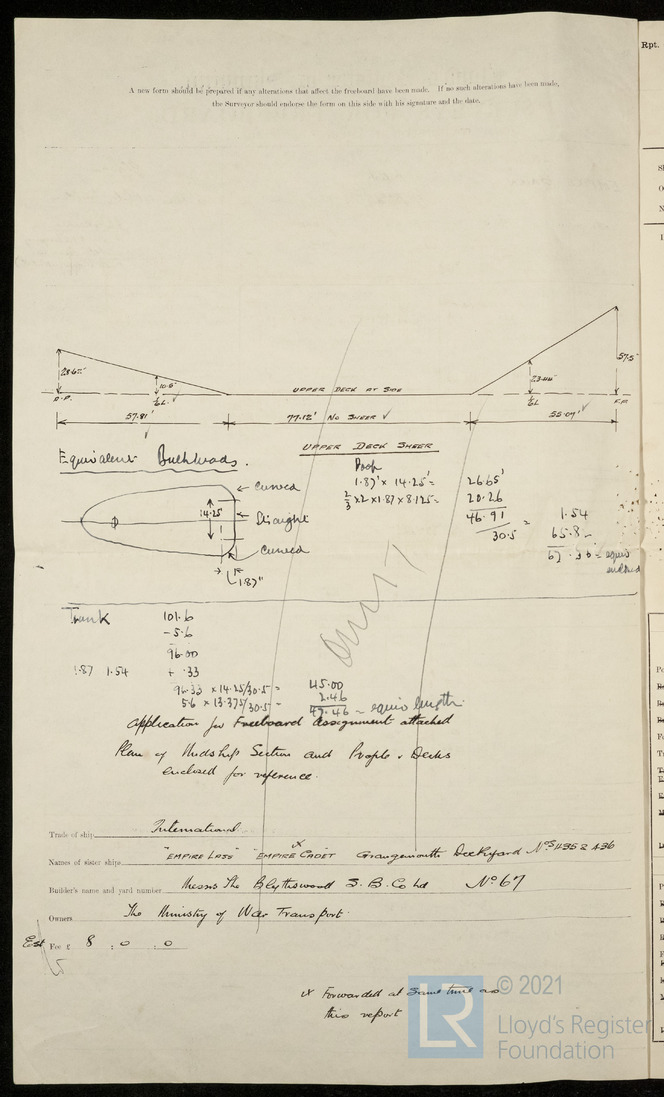 Rpt.
A new form should be prepared if any alterations that affect the freeboard have been made. If no such alterations have been made,
the Surveyor should endorse the form on this side with his signature and the date.
57.5"
10.5"
UPPER DECK AT SIDE
A.P.
½L.
½L
F.P.
57.81'
77.12' NO SHEER √
55.07' √
UPPER DECK SHEER
Equivalent Bulkheads.
Poop
1.87' x 14.25' = 26.65'
2/3 x 2 x 1.87 x 8.125 = 20.26
46.91
30.5
= 1.54
65.8
= equiv
enclosed
curved
14.25
Straight
curved
1.87"
Trunk
101.6
- 5.6
96.00
1.87 1.54 + .33
96.33 x 14.25/30.5 = 45.00
5.6 x 13.375/30.5 = 2.46
47.46 = equiv length.
omit
Application for Freeboard Assignment attached
Plan of Midship Section and Profile & Decks
enclosed for reference.
Trade of ship International.
Names of sister ships "EMPIRE LASS" "EMPIRE CADET" Grangemouth Dockyard Nos 435 & 436
Builder's name and yard number Messrs The Blythswood S. B. Co Ltd No 67
Owners The Ministry of War Transport.
Est Fee £ 8 : 0 : 0
x Forwarded at same time as
this report
© 2021
LR
Lloyd's Register
Foundation